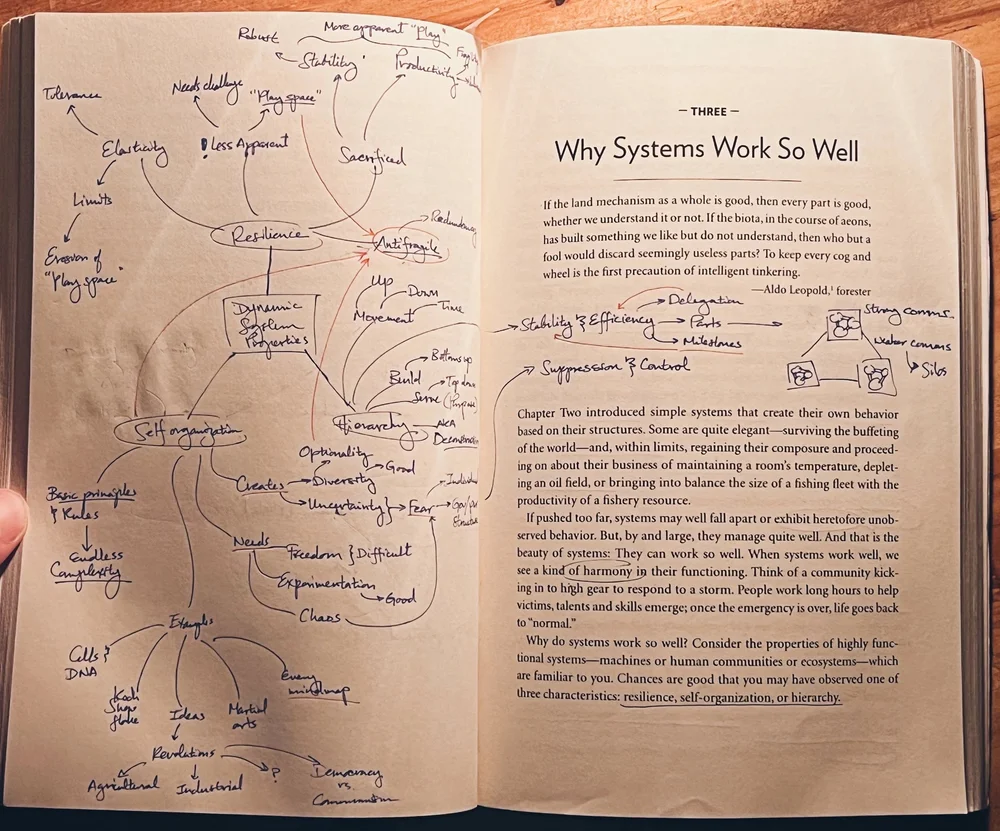 More apparent "Play"
Robust
Stability
Productivity
Needs challenge
"Play space"
Tolerance
Elasticity
! Less Apparent
Sacrificed
Limits
Erosion of
"Play space"
Resilience
Redundancy
Antifragile
Dynamic
System
Properties
Up
Down
Time
Movement
Bottoms up
Build
Top down
Serve (Purpose)
Self organization
Hierarchy
AKA
Optionality
Good
Creates
Diversity
Uncertainty } Fear
Basic principles
& Rules
Endless
Complexity
Needs
Freedom } Difficult
Experimentation
Good
Chaos
Examples
Cells &
DNA
Koch
Snow
flake
Ideas
Martial
arts
Every
mindmap
Revolutions
Agricultural
Industrial
?
Democracy
vs
Communism
— THREE —
Why Systems Work So Well
If the land mechanism as a whole is good, then every part is good,
whether we understand it or not. If the biota, in the course of aeons,
has built something we like but do not understand, then who but a
fool would discard seemingly useless parts? To keep every cog and
wheel is the first precaution of intelligent tinkering.
—Aldo Leopold,¹ forester
Delegation
Stability & Efficiency
Parts
Milestones
Strong comms.
Weaker comms
Silos
Suppression & Control
Chapter Two introduced simple systems that create their own behavior
based on their structures. Some are quite elegant—surviving the buffeting
of the world—and, within limits, regaining their composure and proceed-
ing on about their business of maintaining a room's temperature, deplet-
ing an oil field, or bringing into balance the size of a fishing fleet with the
productivity of a fishery resource.
If pushed too far, systems may well fall apart or exhibit heretofore unob-
served behavior. But, by and large, they manage quite well. And that is the
beauty of systems: They can work so well. When systems work well, we
see a kind of harmony in their functioning. Think of a community kick-
ing in to high gear to respond to a storm. People work long hours to help
victims, talents and skills emerge; once the emergency is over, life goes back
to "normal."
Why do systems work so well? Consider the properties of highly func-
tional systems—machines or human communities or ecosystems—which
are familiar to you. Chances are good that you may have observed one of
three characteristics: resilience, self-organization, or hierarchy.